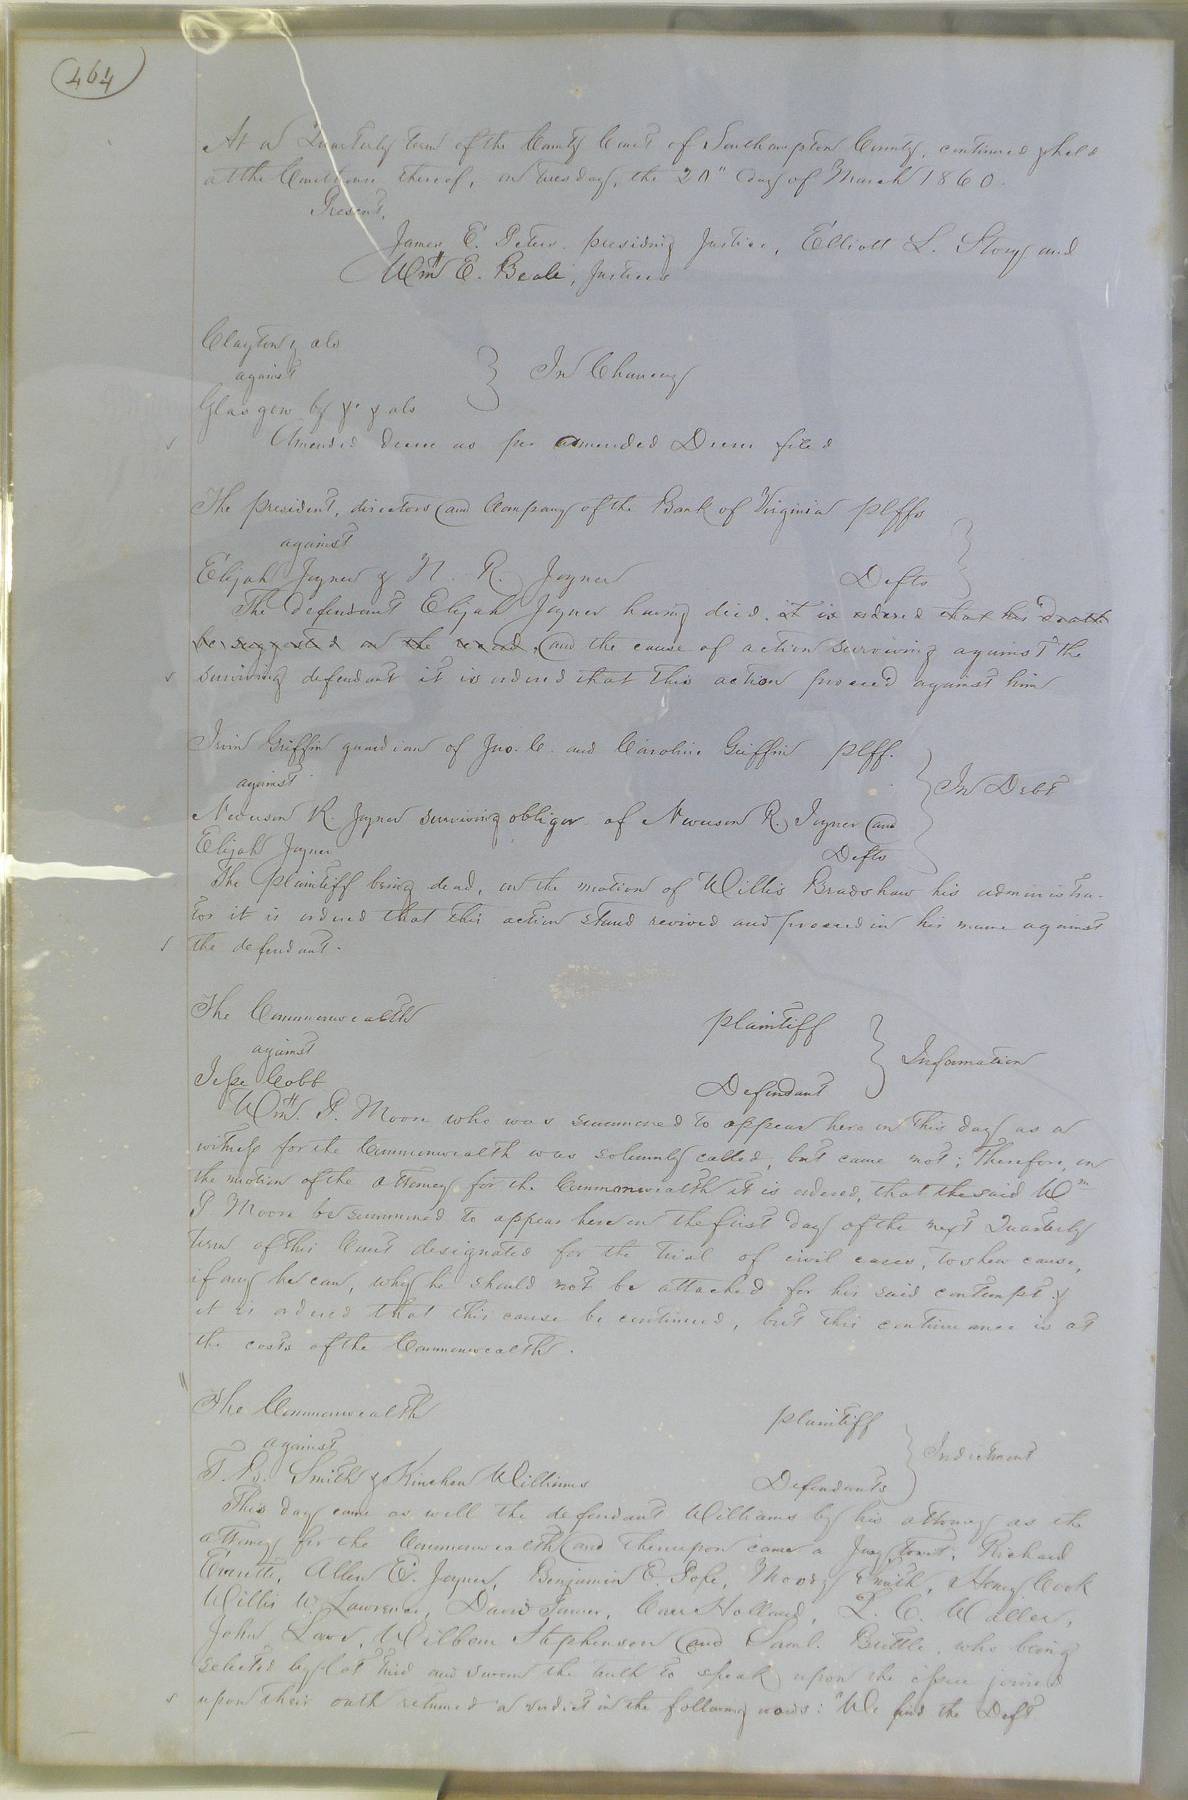 464
At a Quarterly term of the County Court of Southampton County, continued & held
at the Courthouse thereof, on tuesday, the 20" day of March 1860.
Present,
James E. Peters presiding Justice, Elliott L. Story and
Wm E. Beale, Justices
Clayton & als
against
Glasgow by &c & als
In Chancery
Amended decree as per amended Decree filed
The president, directors and Company of the Bank of Virginia plffs
against
Elijah Joyner & N. R. Joyner Defts
The defendant Elijah Joyner having died, it is ordered that his death
be suggested on the record, and the cause of action surviving against the
surviving defendant it is ordered that this action proceed against him
Irvin Griffin guardian of Jno. C. and Caroline Griffin plff.
against
In Debt
Newsom R. Joyner surviving obligor of Newsom R. Joyner and
Elijah Joyner Defts
The plaintiff being dead, on the motion of Willis Bradshaw his administra-
tor it is ordered that this action stand revived and proceed in his name against
the defendant.
The Commonwealth plaintiff
against
Information
Jesse Cobb Defendant
Wm P. Moore who was summoned to appear here on this day as a
witness for the Commonwealth was solemnly called, but came not; Therefore, on
the motion of the attorney for the Commonwealth it is ordered, that the said Wm
P. Moore be summoned to appear here on the first day of the next Quarterly
term of this Court designated for the trial of civil cases, to shew cause,
if any he can, why he should not be attached for his said contempt &
it is ordered that this cause be continued, but this continuance is at
the costs of the Commonwealth.
The Commonwealth plaintiff
against
Indictment
Smith & Kinchen Williams Defendants
This day came as well the defendant Williams by his attorney as the
attorney for the Commonwealth and thereupon came a Jury towit: Richard
Everitt, Allen E. Joyner, Benjamin E. Pope, Moody Smith, Henry Cook
Willis W. Lawrence, David Turner, Carr Holland, C. Waller,
John Wilborn Stephenson and Saml. Buttle, who being
selected by lot tried and sworn the truth to speak upon the issue joined
upon their oath returned a verdict in the following words: "We find the Deft